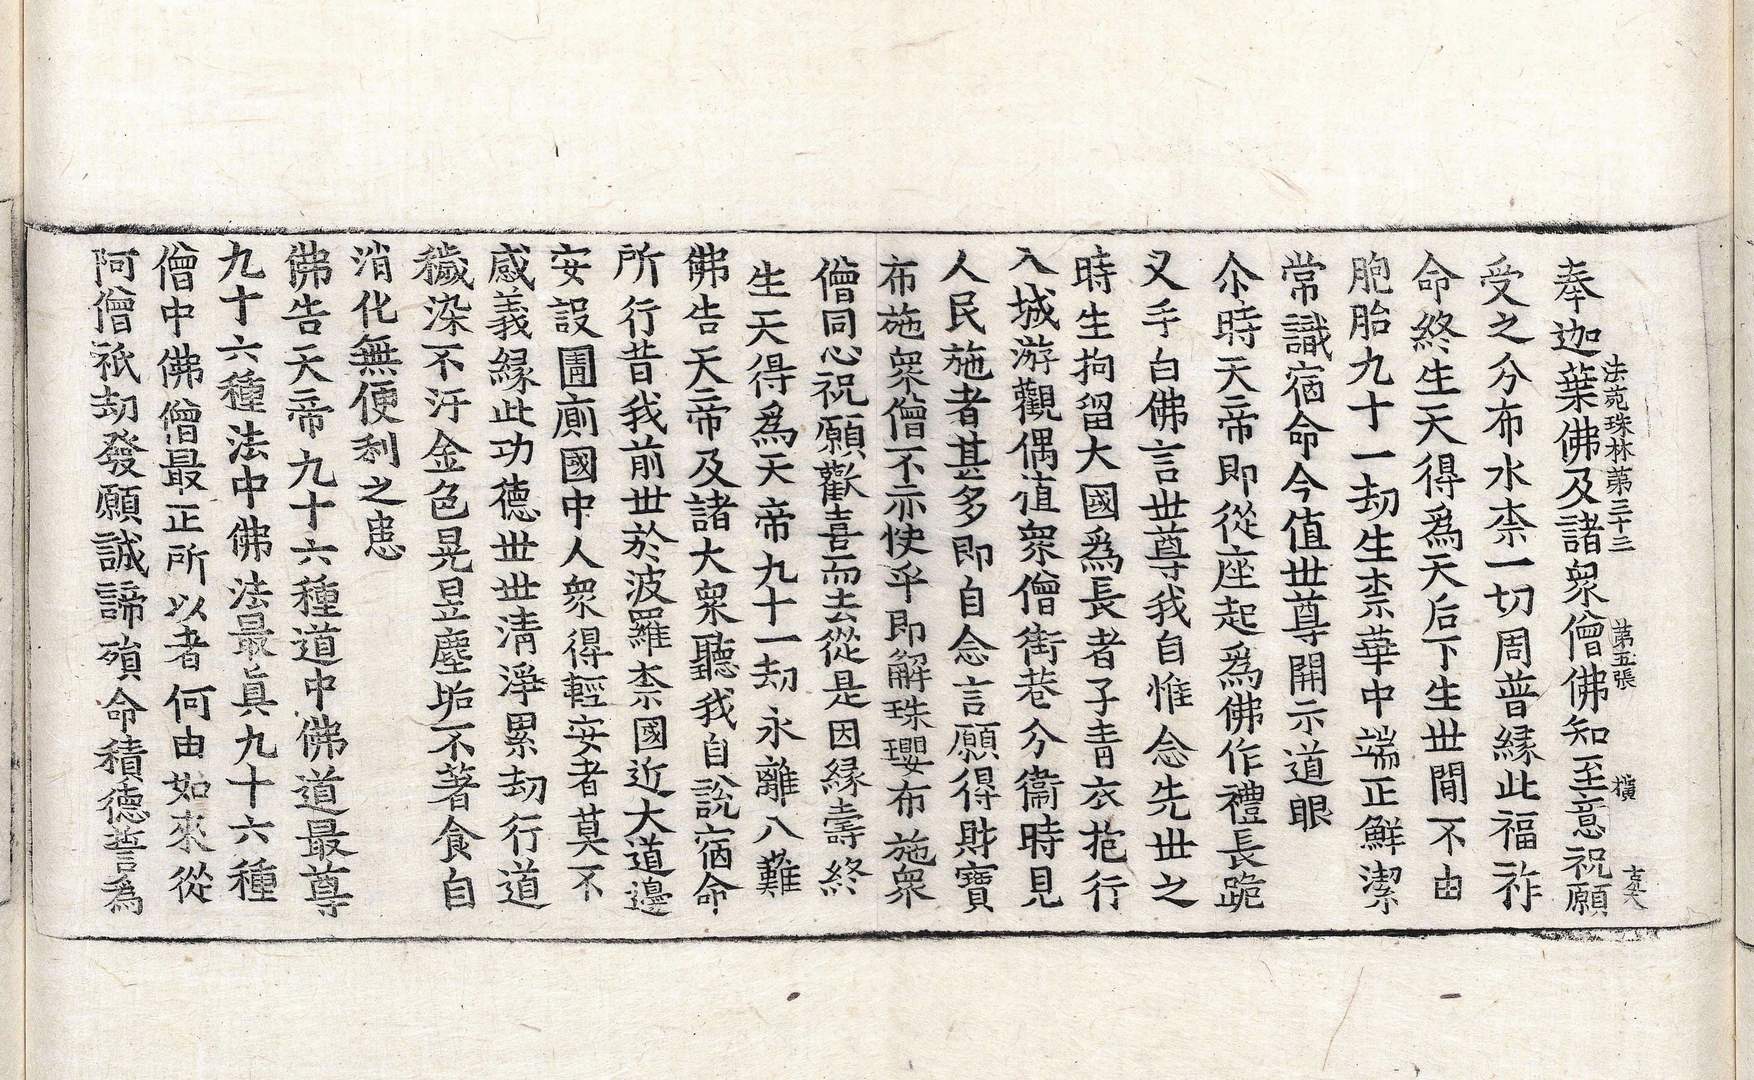 奉迦葉佛及諸衆僧佛知至意祝願
法苑珠林第三十三　第五張　橫
受之分布水柰一切周普緣此福祚
命終生天得爲天后下生世間不由
胞胎九十一劫生柰華中端正鮮潔
常識宿命今值世尊開示道眼
尒時天帝即從座起爲佛作禮長跪
叉手白佛言世尊我自惟念先世之
時生拘留大國爲長者子青衣抱行
入城游觀偶值衆僧街巷分衞時見
人民施者甚多即自念言願得財寶
布施衆僧不亦快乎即解珠瓔布施衆
僧同心祝願歡喜而去從是因緣壽終
生天得爲天帝九十一劫永離八難
佛告天帝及諸大衆聽我自說宿命
所行昔我前世於波羅柰國近大道邊
安設圊廁國中人衆得輕安者莫不
感義緣此功德世世清淨累劫行道
穢染不汙金色晃昱塵垢不著食自
消化無便利之患
佛告天帝九十六種道中佛道最尊
九十六種法中佛法最眞九十六種
僧中佛僧最正所以者何由如來從
阿僧祇劫發願誠諦殞命積德誓為